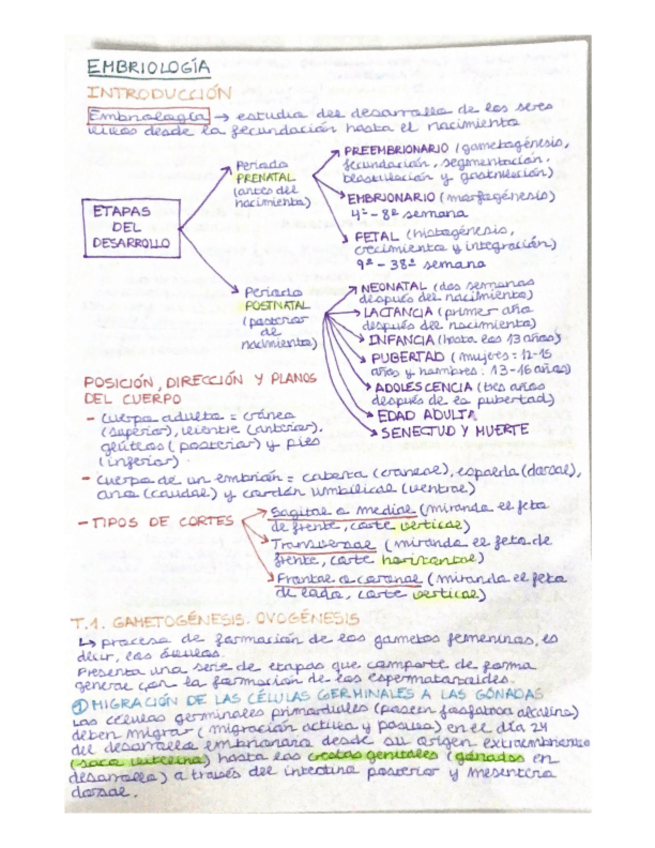 EMBRIOLOGÍA
INTRODUCCIÓN
Embriología → estudia del desarrollo de los seres
vivos desde la fecundación hasta el nacimiento
ETAPAS
DEL
DESARROLLO
Periodo
PRENATAL
(antes del
nacimiento)
PREEMBRIONARIO (gametogénesis,
fecundación, segmentación,
blastulación y gastrulación)
EMBRIONARIO (morfogénesis)
4ª - 8ª semana
FETAL (histogénesis,
crecimiento y integración)
9ª - 38ª semana
Periodo
POSTNATAL
(posterior
de
nacimiento)
NEONATAL (dos semanas
después del nacimiento)
LACTANCIA (primer año
después del nacimiento)
INFANCIA (hasta los 13 años)
PUBERTAD (mujeres: 12-15
años y hombres: 13-16 años)
ADOLESCENCIA (tres años
después de la pubertad)
EDAD ADULTA
SENECTUD Y MUERTE
POSICIÓN, DIRECCIÓN Y PLANOS
DEL CUERPO
- Cuerpo adulto = cráneo
(superior), vientre (anterior),
glúteos (posterior) y pies
(inferior)
- Cuerpo de un embrión = cabeza (craneal), espalda (dorsal),
ano (caudal) y cordón umbilical (ventral)
- TIPOS DE CORTES
Sagital o medial (mirando el feto
de frente, corte vertical)
Transversal (mirando el feto de
frente, corte horizontal)
Frontal o coronal (mirando el feto
de lado, corte vertical)
T.1. GAMETOGÉNESIS. OVOGÉNESIS
↳ proceso de formación de los gametos femeninos, es
decir, los óvulos.
Presenta una serie de etapas que comparte de forma
general con la formación de los espermatozoides.
① MIGRACIÓN DE LAS CÉLULAS GERMINALES A LAS GÓNADAS
Las células germinales primordiales (poseen fosfatasa alcalina)
deben migrar (migración activa y pasiva) en el día 24
del desarrollo embrionario desde su origen extraembrionario
(saco vitelino) hasta las crestas genitales (gónadas en
desarrollo) a través del intestino posterior y mesenterio
dorsal.